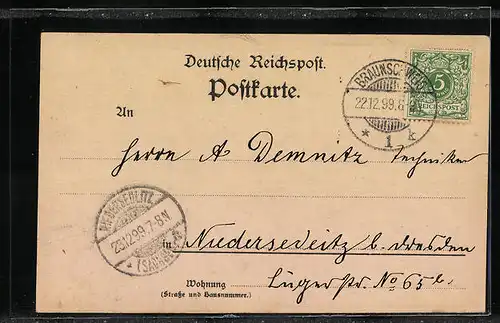 Deutsche Reichspost.
Postkarte.
BRAUNSCHWEIG
22.12.99. 6
* 1 k
5
REICHSPOST
An
Herrn A Demnitz Techniker
NIEDERSEDLITZ
23.12.99. 7-8N.
* (SACHSEN)
in Niedersedlitz b. Dresden
Wohnung
(Straße und Hausnummer.)
Lugerstr. No 65b.